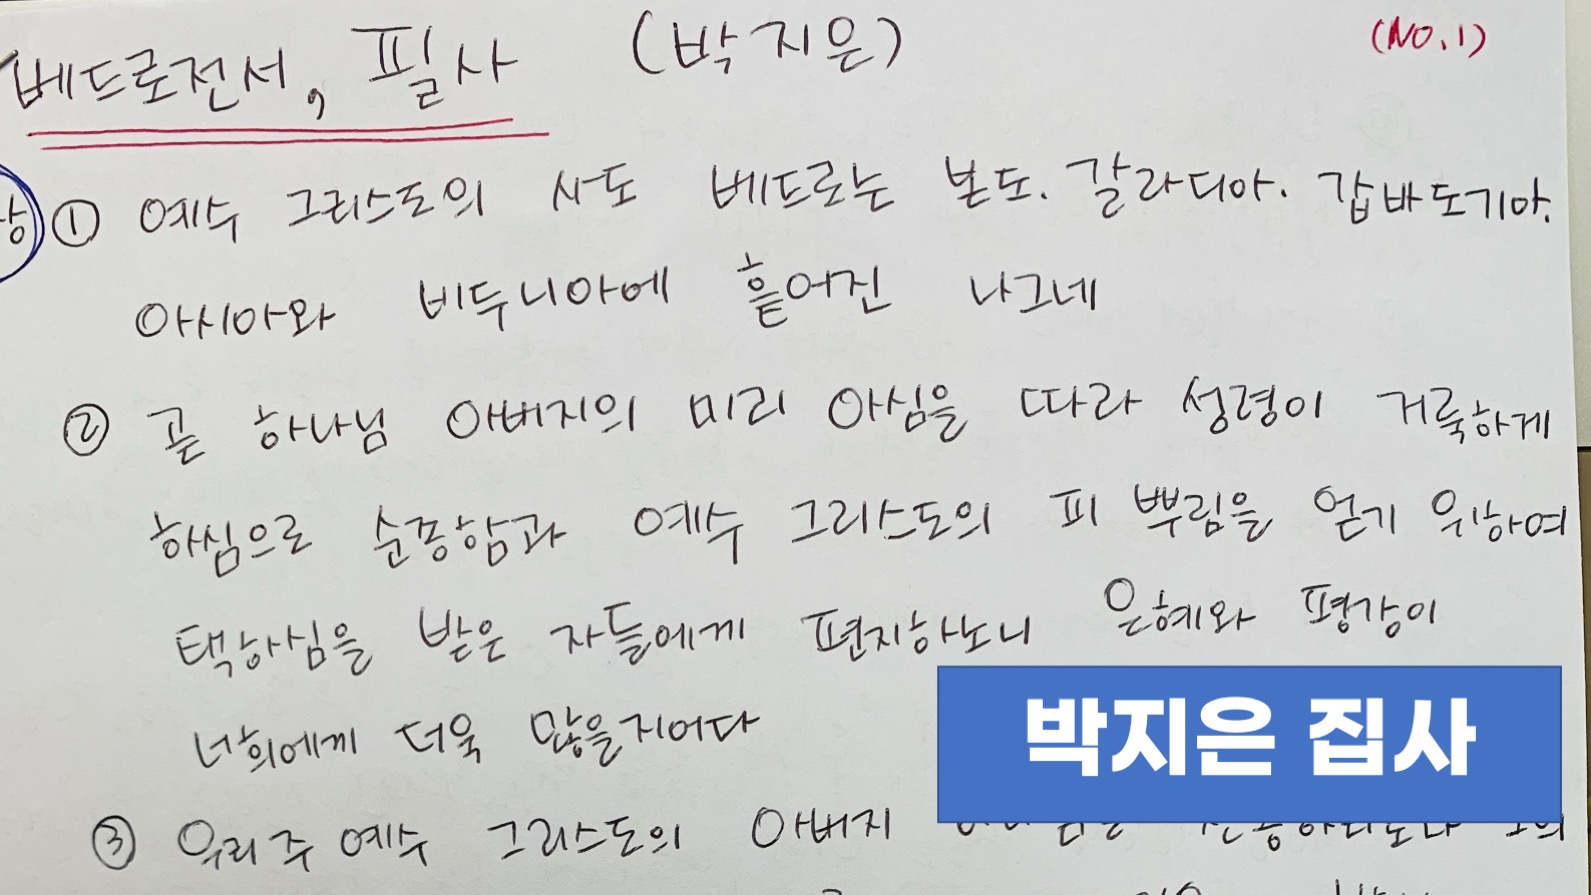 베드로전서, 필사 (박지은) (NO.1)
① 예수 그리스도의 사도 베드로는 본도. 갈라디아. 갑바도기아.
아시아와 비두니아에 흩어진 나그네
② 곧 하나님 아버지의 미리 아심을 따라 성령이 거룩하게
하심으로 순종함과 예수 그리스도의 피 뿌림을 얻기 위하여
택하심을 받은 자들에게 편지하노니 은혜와 평강이
너희에게 더욱 많을지어다
박지은 집사
③ 우리 주 예수 그리스도의 아버지